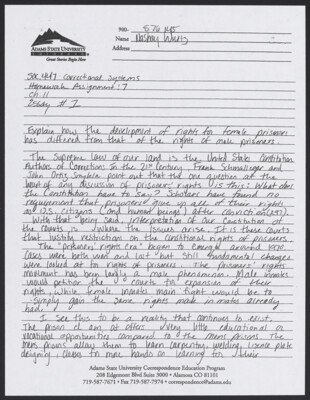 ADAMS STATE UNIVERSITY
COLORADO
Great Stories Begin Here
900-
Name
Address
SOC 447 Correctional Systems
Homework Assignment: 7
Ch. 11
Essay # 1
Explain how the development of rights for female prisoners
has differed from that of the rights of male prisoners.
The Supreme Law of our land is the United States Constitution
Authors of Corrections In the 21st Century, Frank Schmalleger and
John Ortiz Smykla point out that the one question at the
heart of any discussion of prisoners' rights is this: What does
the Constitution have to say? Scholars have found no
requirement that prisoners give up all of their rights
as U.S. citizens (and human beings) after conviction (297).
With that being said, interpretation of our Constitution of
the Courts is where the issues arise. It is these courts
that justify restrictions on the conditional rights of prisoners.
The "prisoners rights era" began to emerge around 1970.
Cases were both won and lost but still fundamental changes
were looked at to rights of prisoners. The prisoners' rights
movement has been largely a male phenomenon. Male inmates
would petition the courts for expansion of their
rights, while female inmates main fight would be to
simply gain the same rights male inmates already
had.
I see this to be a reality that continues to exist.
The prison I am at offers very little educational or
vocational opportunities compared to the mens prisons. The
mens prisons allow them to learn carpentry, welding, license plate
designing, classes to more hands on learning for their
Adams State University Correspondence Education Program
208 Edgemont Blvd Suite 3000 • Alamosa CO 81101
719-587-7671 • Fax 719-587-7974 • correspondence@adams.edu